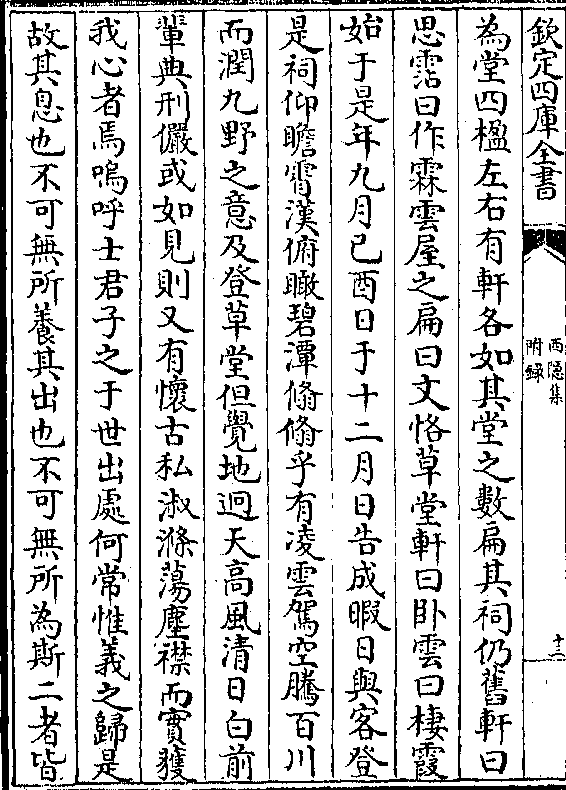 欽定四庫全書
西隱集
附録
十二
為堂四楹左右有軒各如其堂之數扁其祠仍舊軒曰
思霑曰作霖雲屋之扁曰文恪草堂軒曰卧雲曰棲霞
始于是年九月已酉日于十二月日告成暇日與客登
是祠仰瞻霄漢俯瞰碧潭翛翛乎有凌雲駕空騰百川
而潤九野之意及登草堂但覺地迥天高風清日白前
輩典刑儼或如見則又有懷古私淑滌蕩塵襟而實獲
我心者焉嗚呼士君子之于世出處何常惟義之歸是
故其息也不可無所養其出也不可無所為斯二者皆